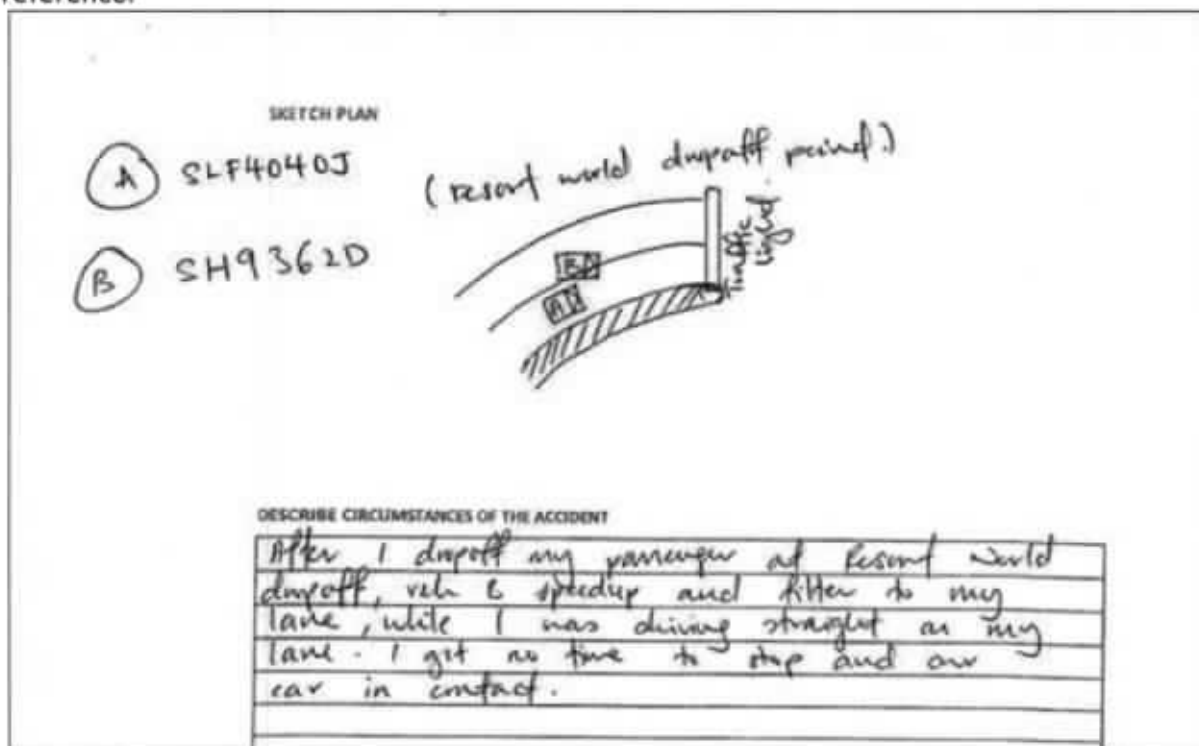 reference.
SKETCH PLAN
A SLF4040J
(resort world dropoff point.)
B SH9362D
B
A
Traffic
Light.
DESCRIBE CIRCUMSTANCES OF THE ACCIDENT
After I dropoff my passenger at Resort World
dropoff, veh B speedup and filter to my
lane, while I was driving straight on my
lane. I got no time to stop and our
car in contact.